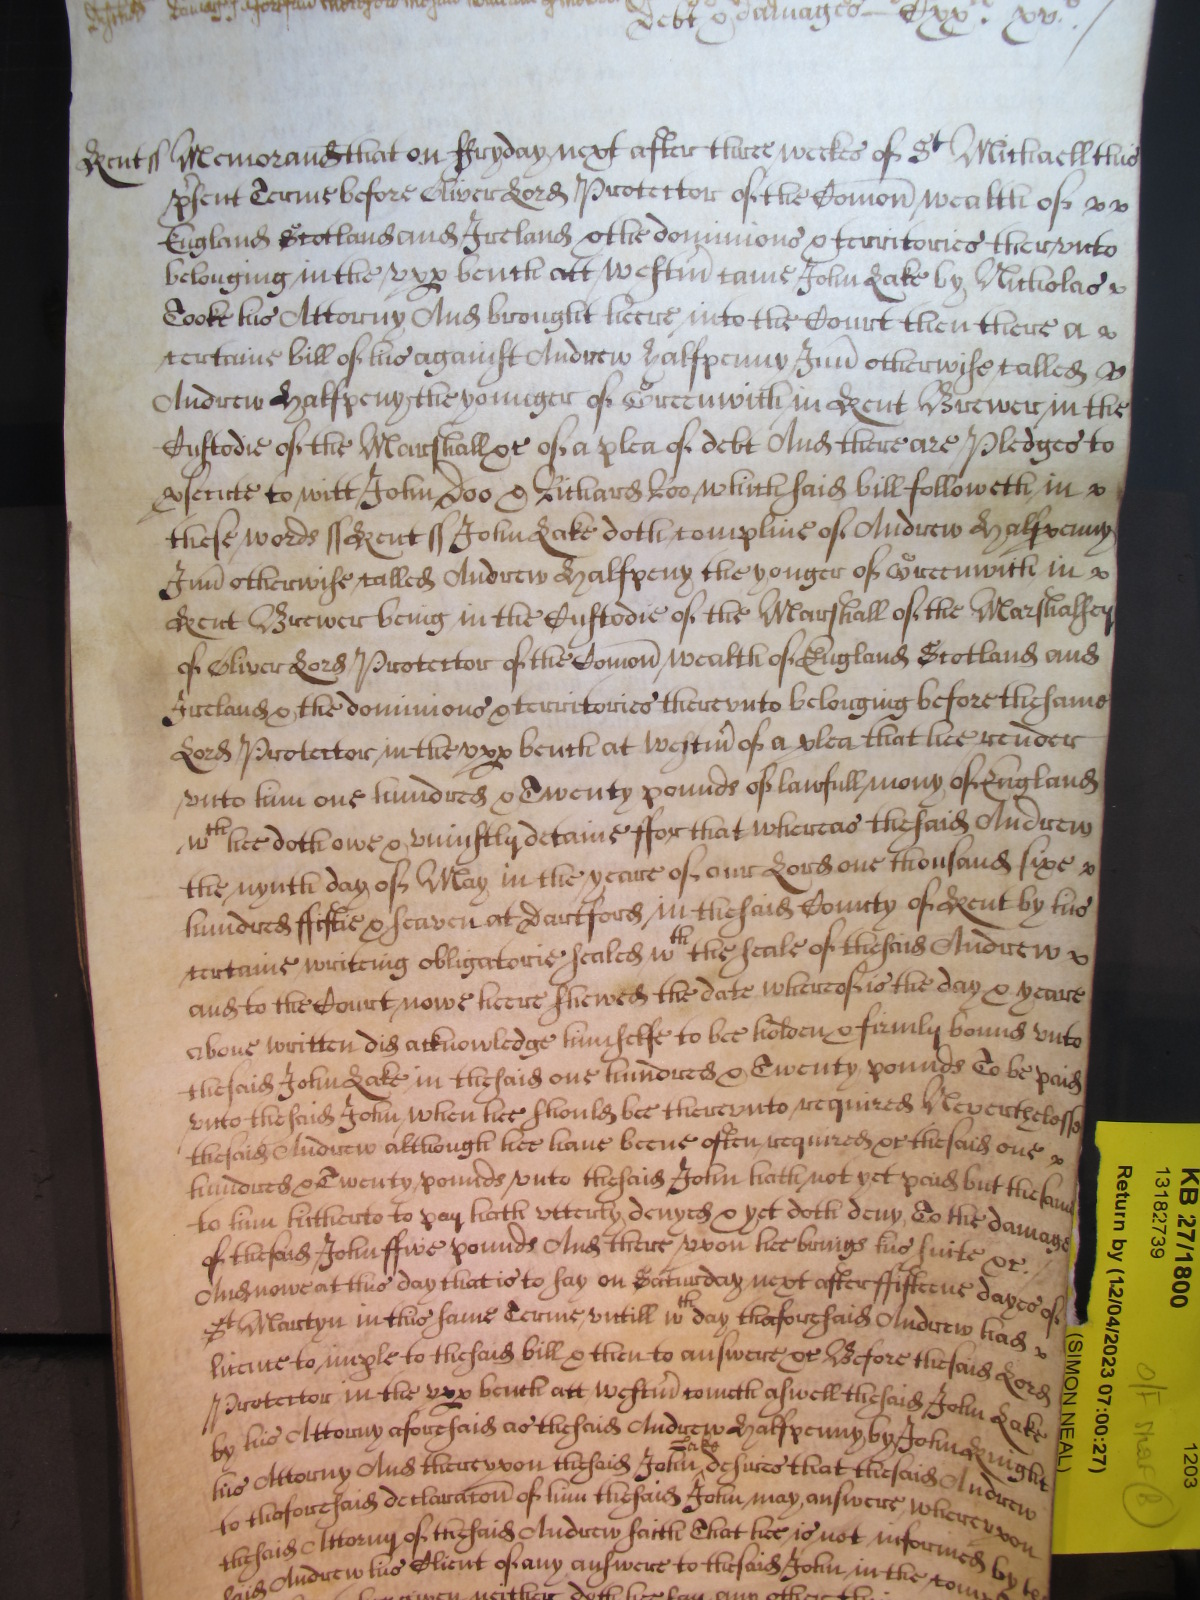 Debt & damages — Cxx li. xv s.
Kent ss Memorand that on ffryday next after three weekes of St Michaell this
p'sent Terme before Oliver Lord Protector of the Com̄on wealth of
England Scotland and Ireland & the dominions & territories therevnto
belonging in the vpp bench att Westm̄ came John Lake by Nicholas
Cooke his Attorny And brought heere into the Court then there a
certaine bill of his against Andrew Halfpenny Jun̄ otherwise called
Andrew Halfpeny the younger of Greenwich in Kent Brewer in the
Custodie of the Marshall &c of a plea of debt And there are Pledges to
p'secute to witt John Doo & Richard Roo which said bill followeth in
these words ss Kent ss John Lake doth complaine of Andrew Halfpenny
Jun̄ otherwise called Andrew Halfpeny the yonger of Greenwich in
Kent Brewer being in the Custodie of the Marshall of the Marshalsey
of Oliver Lord Protector of the Com̄on wealth of England Scotland and
Ireland & the dominions & territories therevnto belonging before the same
Lord Protector in the vpp bench at Westm̄ of a plea that hee render
vnto him one hundred & Twenty pounds of lawfull mony of England
wth hee doth owe & vniustly detaine ffor that whereas the said Andrew
the nynth day of May in the yeare of our Lord one thousand sixe
hundred fiftie & seaven at Dartford in the said County of Kent by his
certaine writeing obligatorie sealed wth the seale of the said Andrew
and to the Court nowe heere shewed the date whereof is the day & yeare
aboue written did acknowledge himselfe to bee holden & firmly bound vnto
the said John Lake in the said one hundred & Twenty pounds To be paid
vnto the said John when hee should bee therevnto required Neverthelesse
the said Andrew although hee haue beene often required &c the said one
hundred & Twenty pounds vnto the said John hath not yet paid but the same
to him hitherto to pay hath vtterly denyed & yet doth deny To the damage
of the said John ffive pounds And there vpon hee brings his suite &c.
And nowe at this day that is to say on Saturday next after ffifteene dayes of
St Martyn in this same Terme vntill wth day the aforesaid Andrew had
licence to imple to the said bill & then to answere &c Before the said Lord
Protector in the vpp bench att Westm̄ cometh aswell the said John Lake
by his Attorny aforesaid as the said Andrew Halfpenny by John Knight
his Attorny And therevpon the said John Lake desires that the said Andrew
to the aforesaid declaratoñ of him the said John may answere wherevpon
the said Attorny of the said Andrew saith That hee is not informed by
said Andrew his Client of any answere to the said John in the
neither doth hee say any other
KB 27/1800
13182739
1203
Return by (12/04/2023 07:00:27)
(SIMON NEAL)
O/F Shelf B